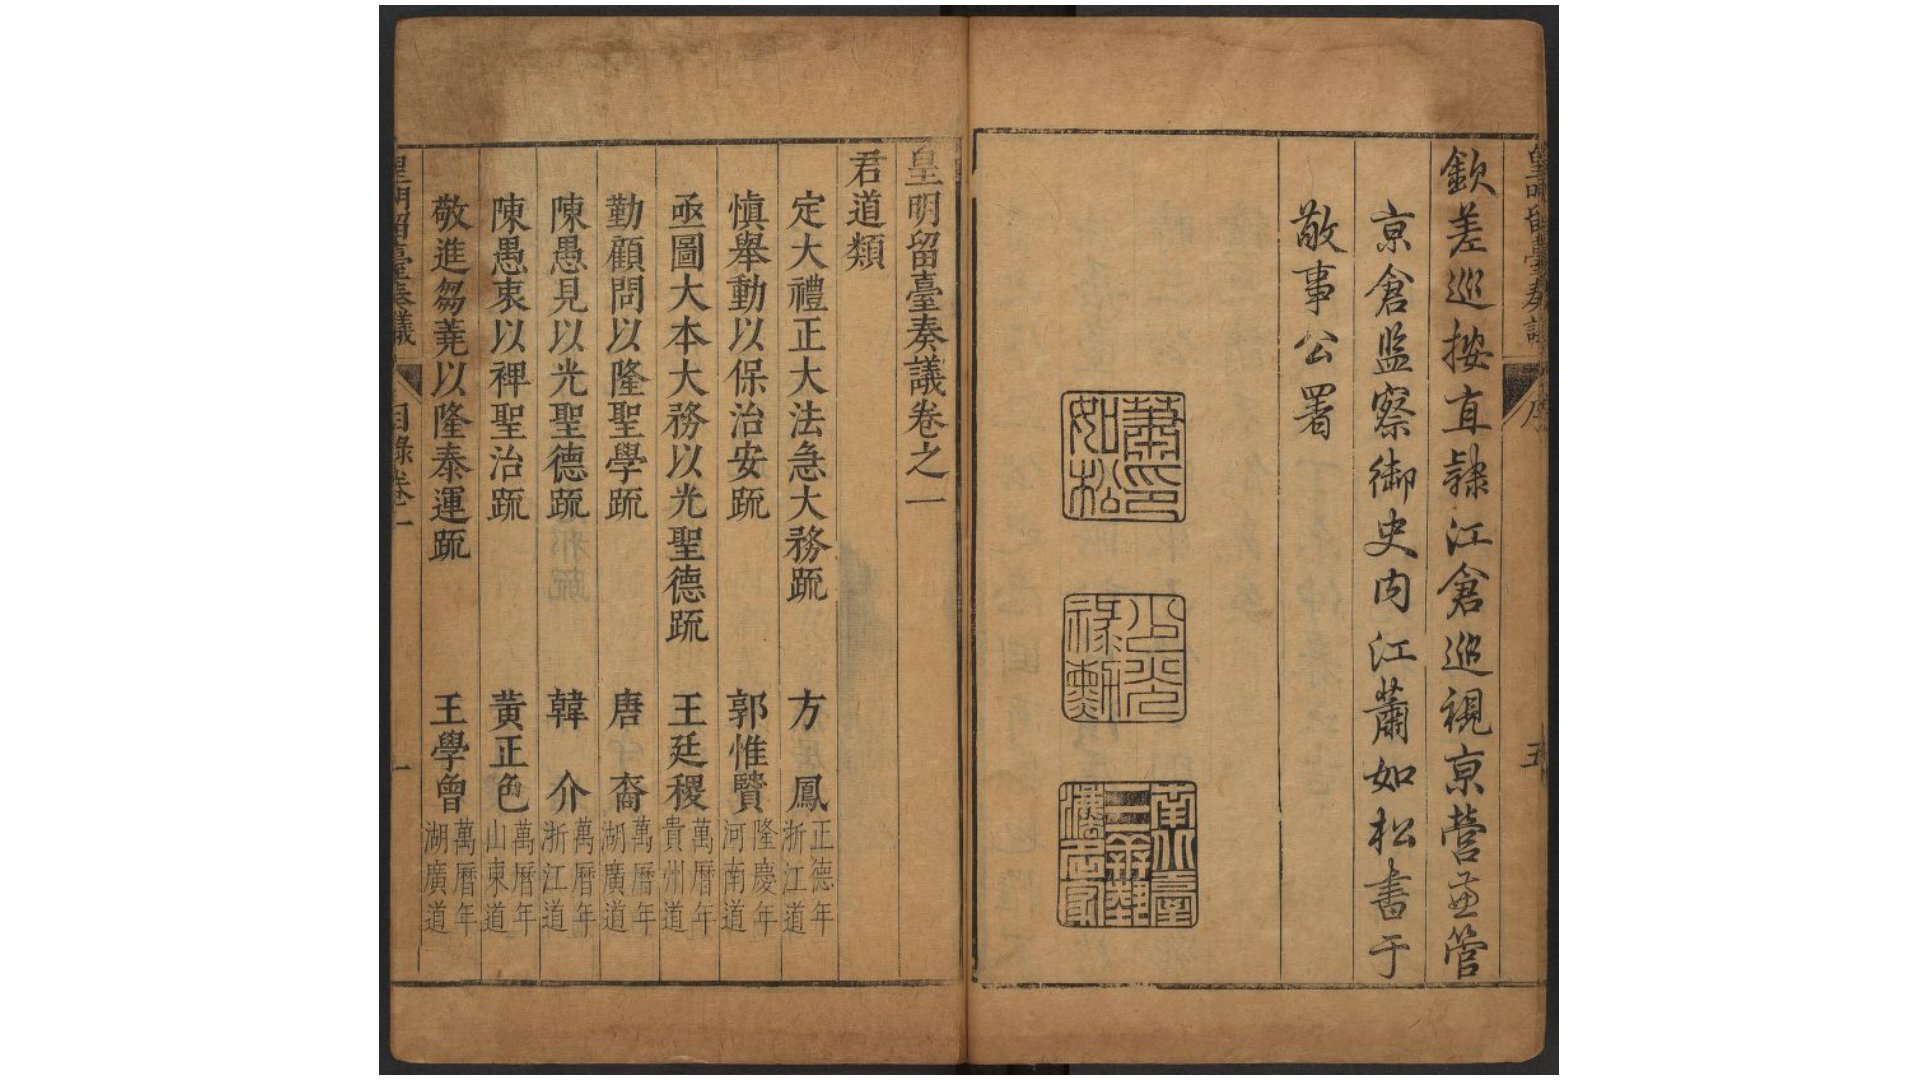 欽差巡按直隷江倉巡視京營兼管
京倉監察御史内江蕭如松書于
敬事公署
蕭印如松
皇明留臺奏議卷之一
君道類
定大禮正大法急大務疏 方鳳 正德年 浙江道
愼舉動以保治安疏 郭惟賢 隆慶年 河南道
亟圖大本大務以光聖德疏 王廷稷 萬曆年 貴州道
勤顧問以隆聖學疏 唐裔 萬曆年 湖廣道
陳愚見以光聖德疏 韓介 萬曆年 浙江道
陳愚衷以裨聖治疏 黄正色 萬曆年 山東道
敬進芻蕘以隆泰運疏 王學曾 萬曆年 湖廣道
皇明留臺奏議 目錄卷一 一